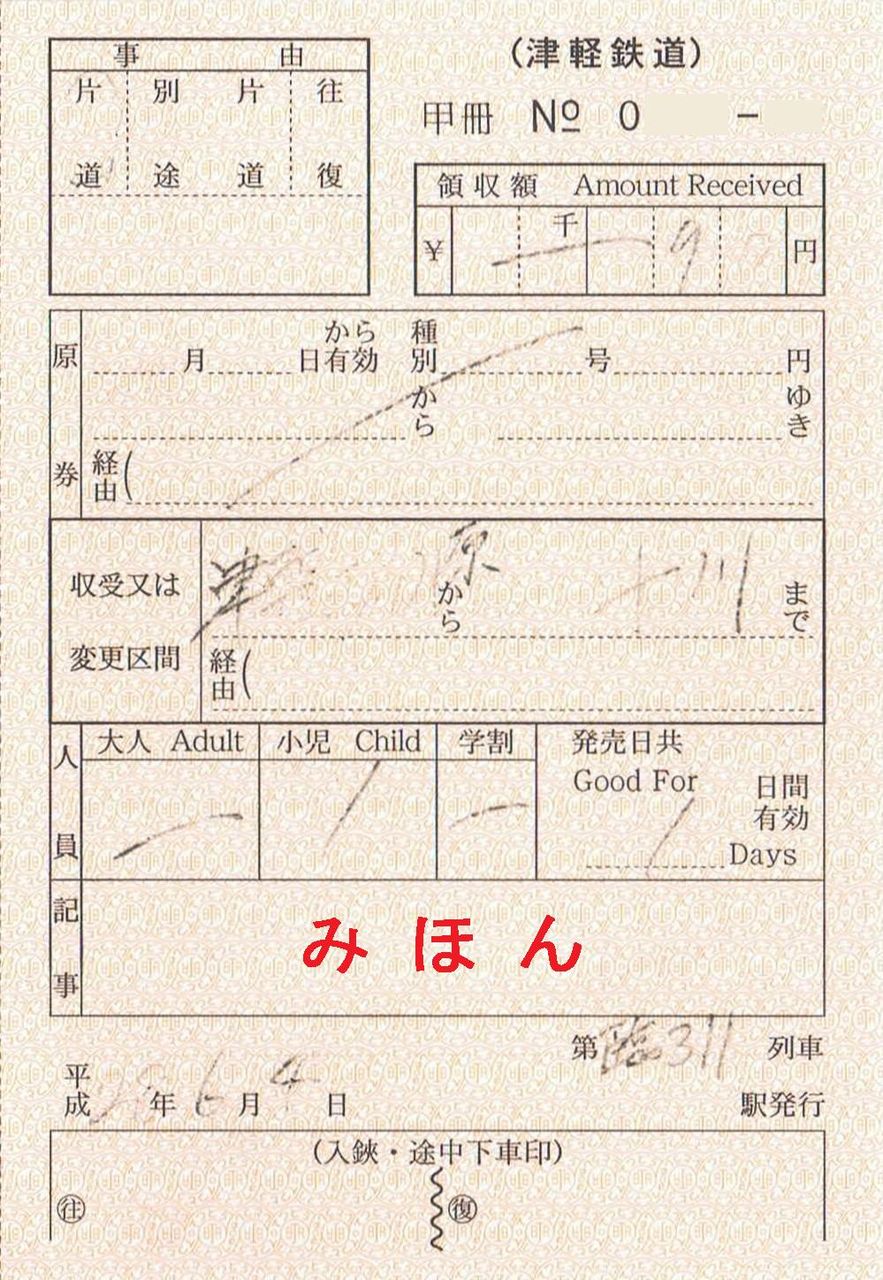 (津軽鉄道)
甲冊 № 0 −
事由
片道 別途 片道 往復
領収額 Amount Received
¥ 千 9 円
原券
月 日から有効 種別 号 円
から ゆき
経由(
収受又は変更区間
津 原から 川まで
経由(
人員
大人 Adult 小児 Child 学割 発売日共
Good For
日間有効
一 / 一 1 Days
記事
みほん
第臨311列車
平成28年6月4日 駅発行
(入鋏・途中下車印)
往 復